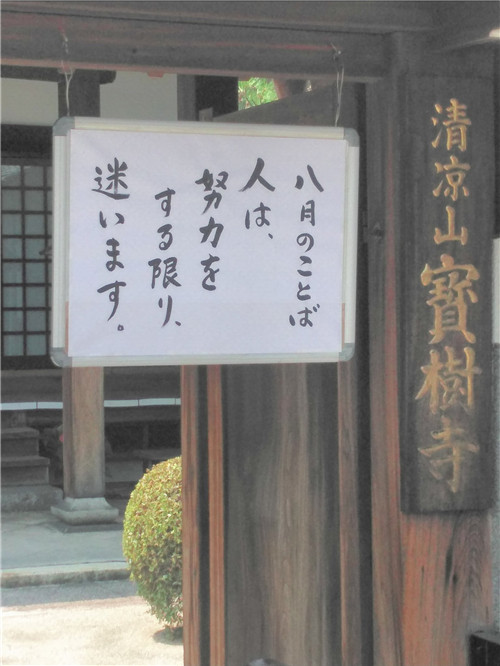 八月のことば
人は、
努力を
する限り、
迷います。
清凉山寶樹寺